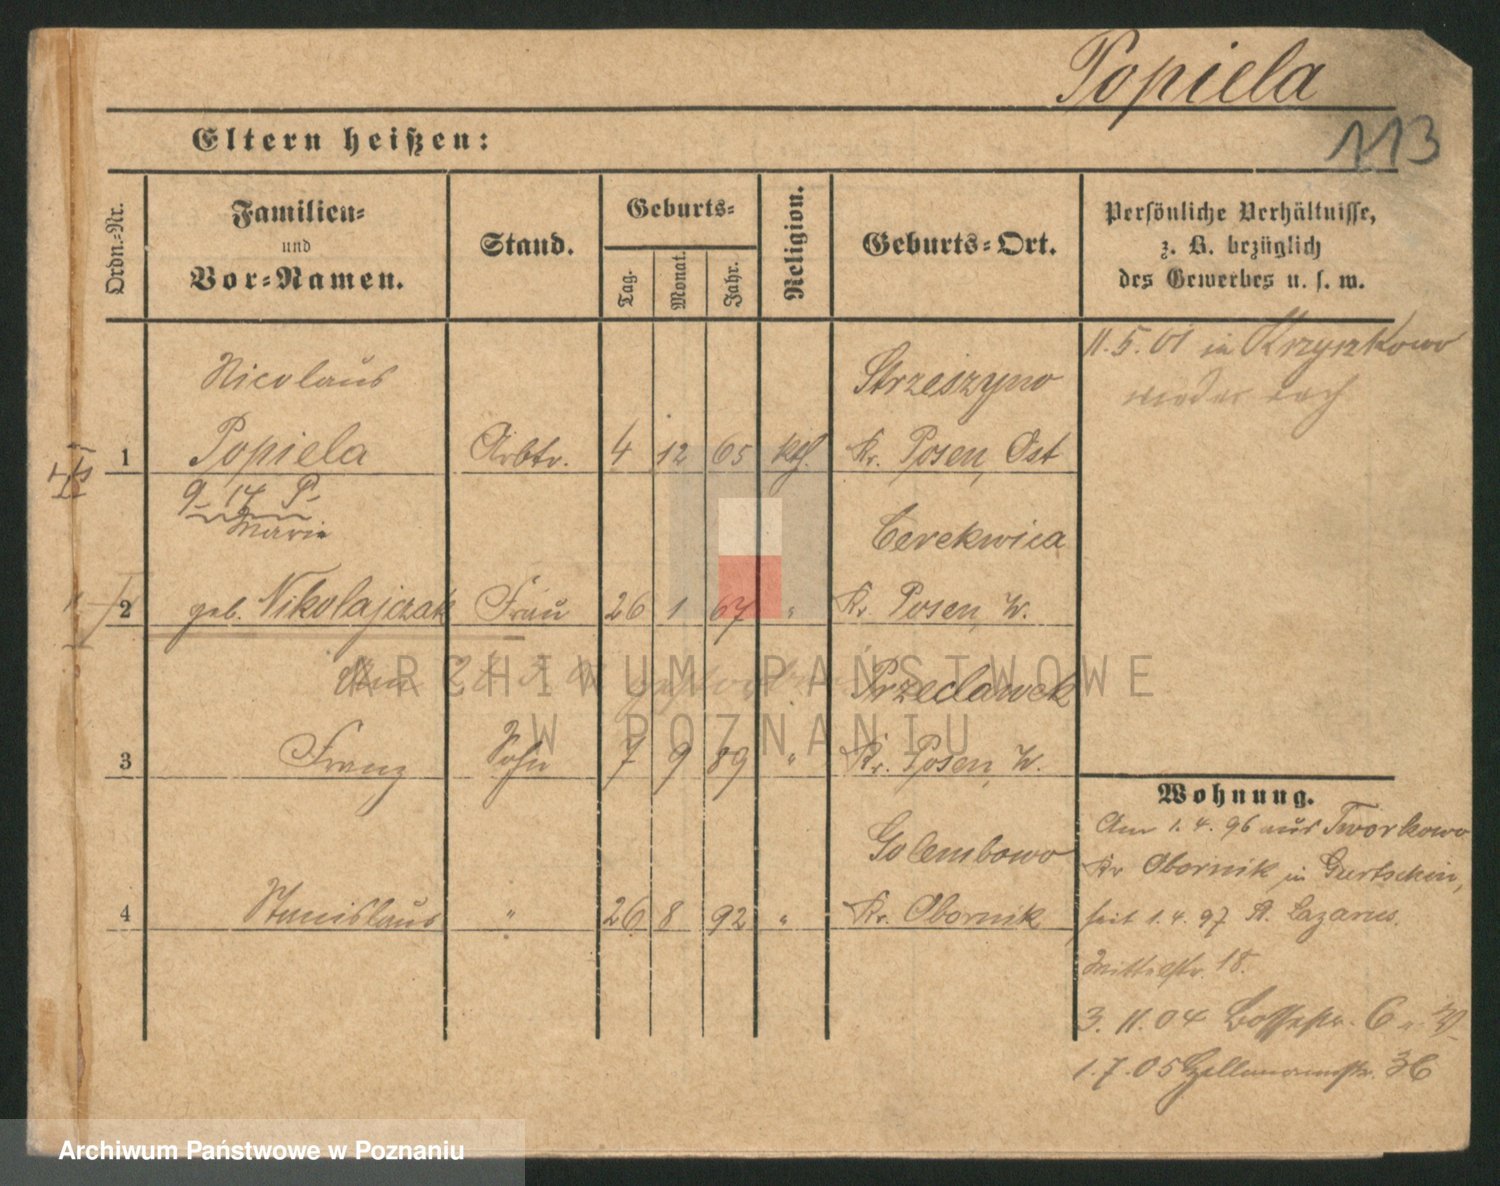 Popiela
113
Eltern heißen:
Ordn.-Nr.
Familien-
und
Vor-Namen.
Stand.
Geburts-
Tag.
Monat.
Jahr.
Religion.
Geburts-Ort.
Persönliche Verhältnisse,
z. B. bezüglich
des Gewerbes u. s. w.
Nicolaus Strzeszyno
1 Popiela Arbtr. 4 12 65 kth. Kr. Posen, Ost
11.5.01 in Krzyszkowo
wieder nach
9 14 P.
Marie Cerekwica
2 geb. Nikolajczak Frau 26 1 67 " Kr. Posen, W.
Przeclawek
3 Franz Sohn 7 9 89 " Kr. Posen, W.
Golembowo
4 Stanislaus " 26 8 92 " Kr. Obornik
Wohnung.
Am 1.4.96 aus Tworkowo
Kr Obornik in Gurtschin,
seit 1.4.97 St. Lazarus.
Mittelstr. 18.
3.11.04 6
1.7.05 36
ARCHIWUM PAŃSTWOWE
W POZNANIU
Archiwum Państwowe w Poznaniu